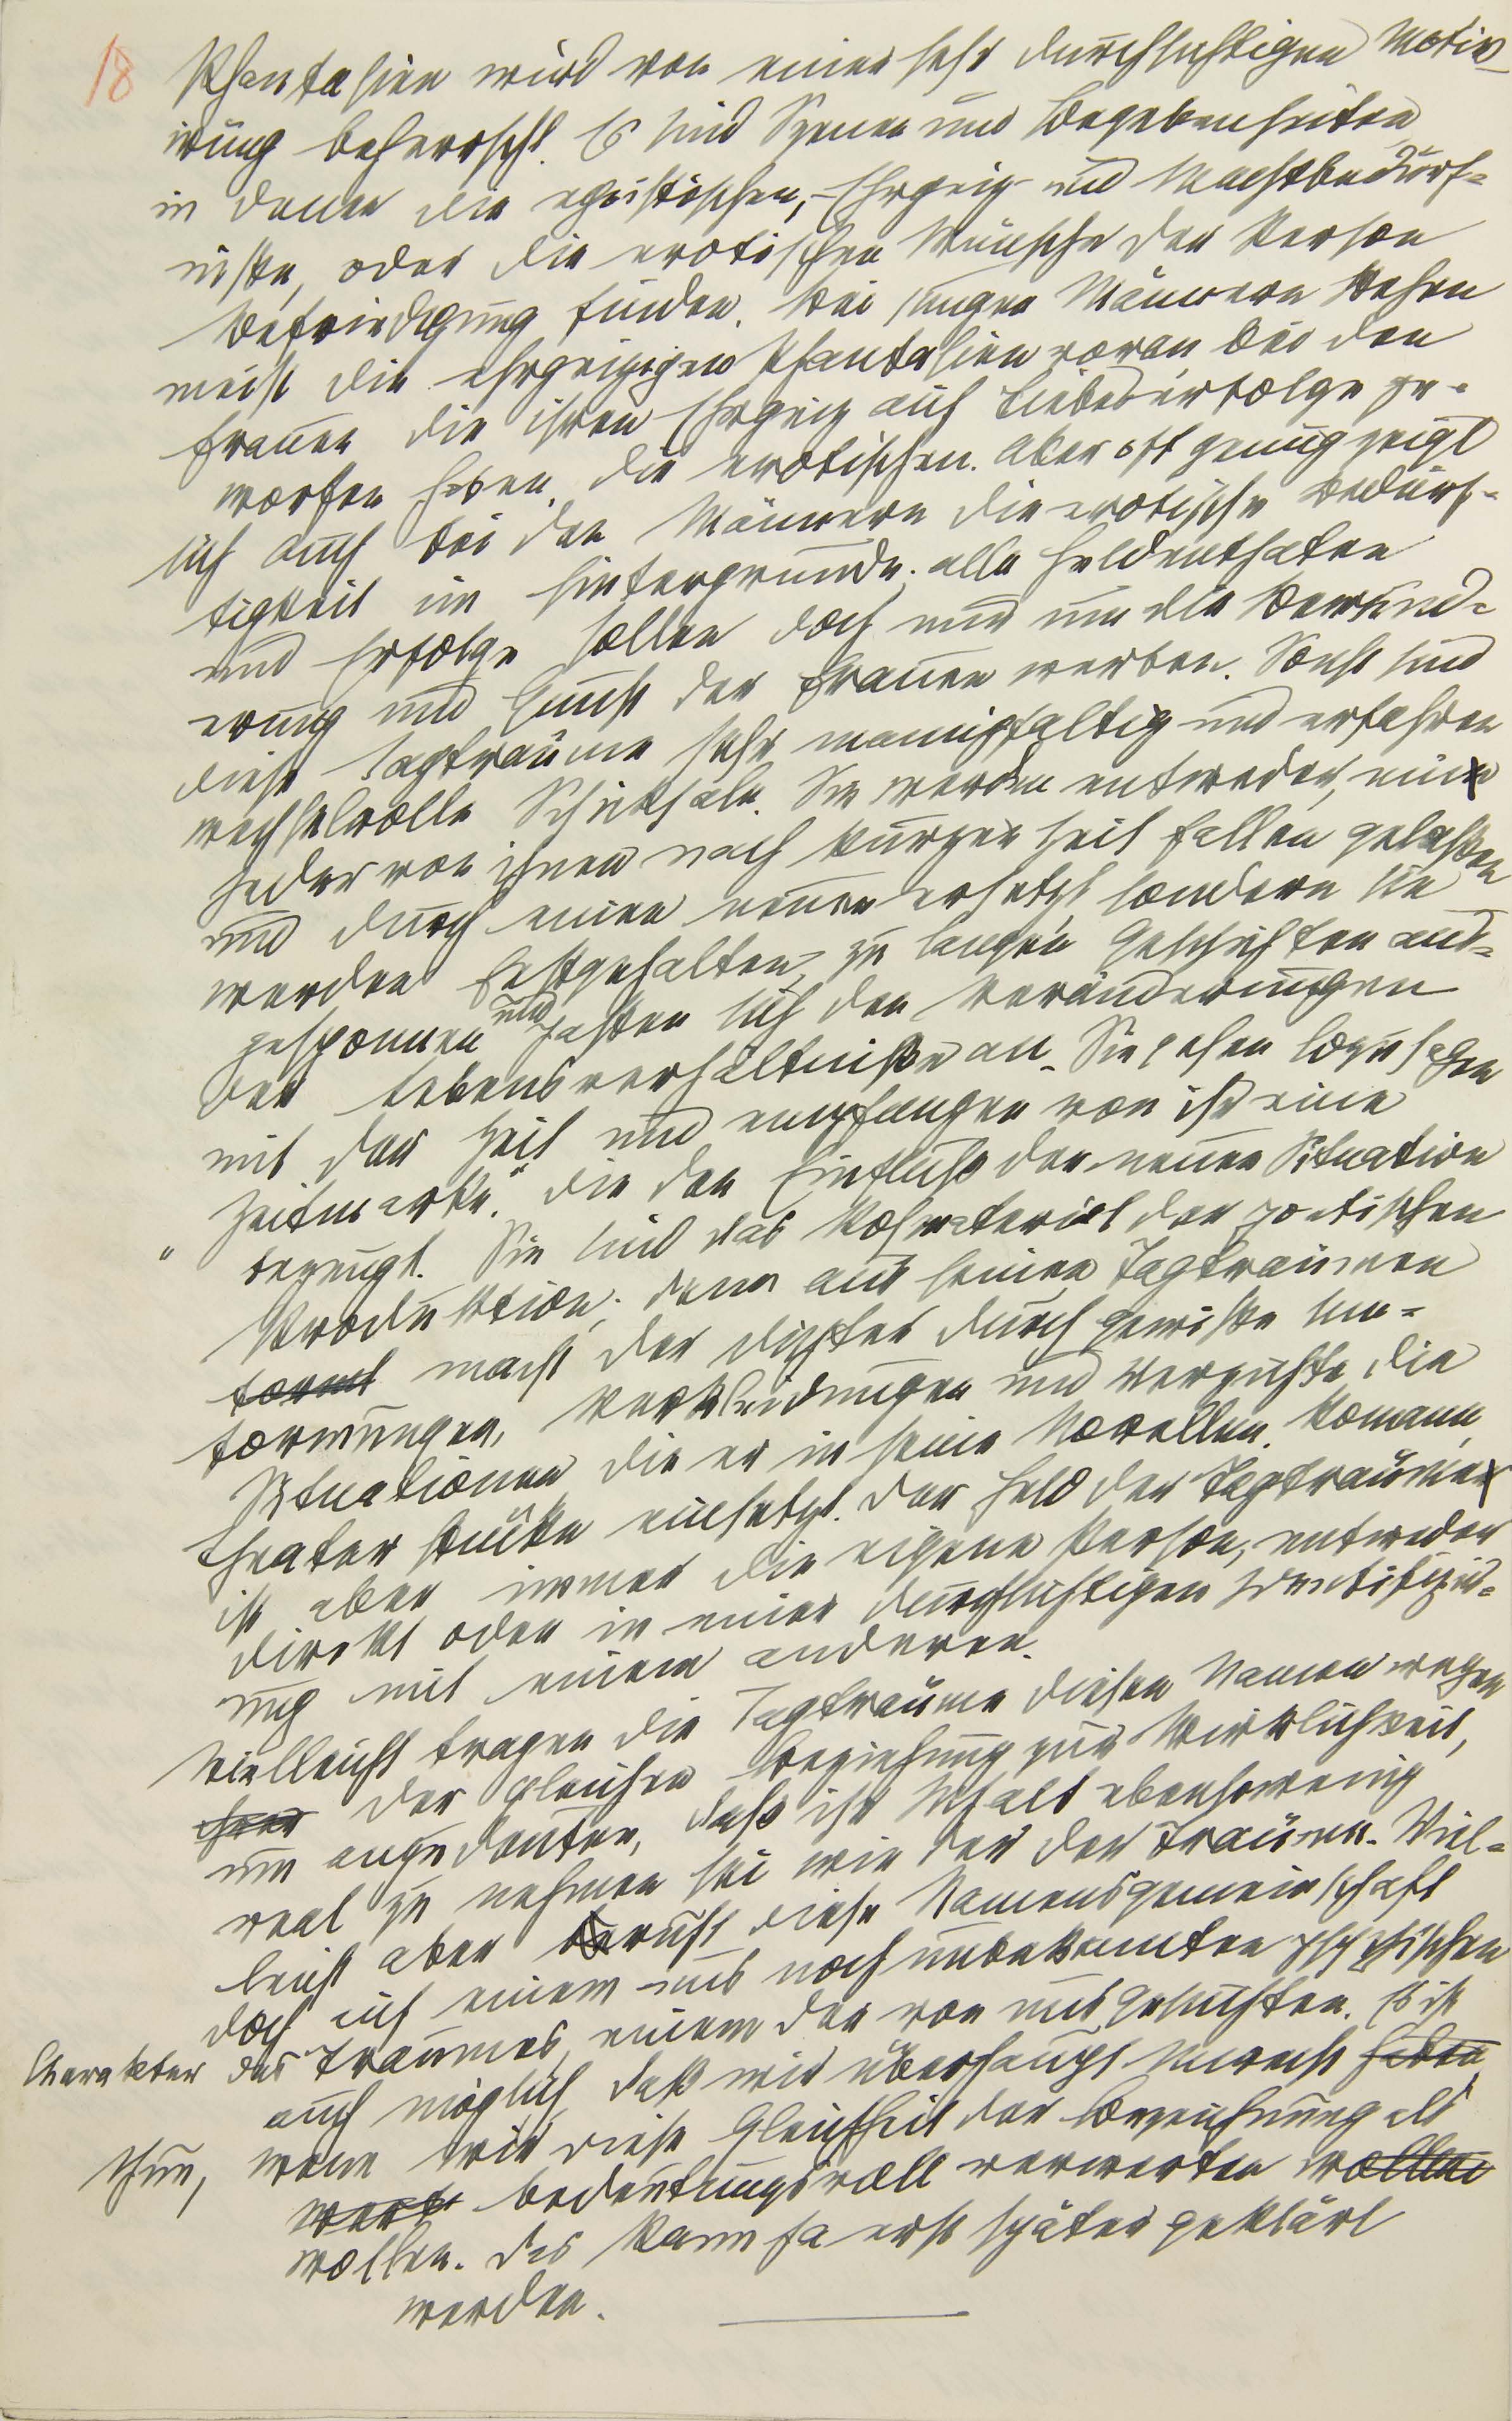 18
Phantasien wird von einer sehr durchsichtigen Motiv-
irung beherrscht. Es sind Szenen und Begebenheiten,
in denen die egoistischen, Ehrgeiz- und Machtbedürf-
nisse, oder die erotischen Wünsche der Person
Befriedigung finden. Bei jungen Männern stehen
meist die ehrgeizigen Phantasien voran bei den
Frauen die ihren Ehrgeiz auf Liebeserfolge ge-
worfen haben, die erotischen. Aber oft genug zeigt
sich auch bei den Männern die erotische Bedürf-
tigkeit im Hintergrunde; alle Heldenthaten
und Erfolge sollen doch nur um die Bewund-
erung und Gunst der Frauen werben. Sonst sind
diese Tagträume sehr mannigfaltig und erfahren
wechselvolle Schicksale. Sie werden entweder, ein
jeder von ihnen nach kurzer Zeit fallen gelaßen
und durch einen neuen ersetzt sondern sie
werden festgehalten, zu langen Geschichten aus-
gesponnen und paßen sich den Veränderungen
der Lebensverhältniße an. Sie gehen sozusagen
mit der Zeit und empfangen von ihr eine
„Zeitmarke“ die den Einfluß der neuen Situation
bezeugt. Sie sind das Rohmaterial der poetischen
Produktion; denn aus seinen Tagträumen
formt macht der Dichter durch gewiße Um-
formungen, Verkleidungen und Verzichte die
Situationen die er in seine Novellen, Romane,
Theaterstücke einsetzt. Der Held der Tagträume
ist aber immer die eigene Person, entweder
direkt oder in einer durchsichtigen Identifizir-
ung mit einem anderen.
Vielleicht tragen die Tagträume diesen Namen wegen
der gleichen Beziehung zur Wirklichkeit,
um anzudeuten, daß ihr Inhalt ebensowenig
real zu nehmen sei wie der der Träume. Viel-
leicht aber beruht diese Namensgemeinschaft
doch auf einem uns noch unbekannten psychischen
Charakter des Traumes, einem der von uns gesuchten. Es ist
auch möglich, daß wir überhaupt Unrecht haben
thun, wenn wir diese Gleichheit der Bezeichnung als
bedeutungsvoll verwerten wollen
wollen. Das kann ja erst später geklärt
werden.